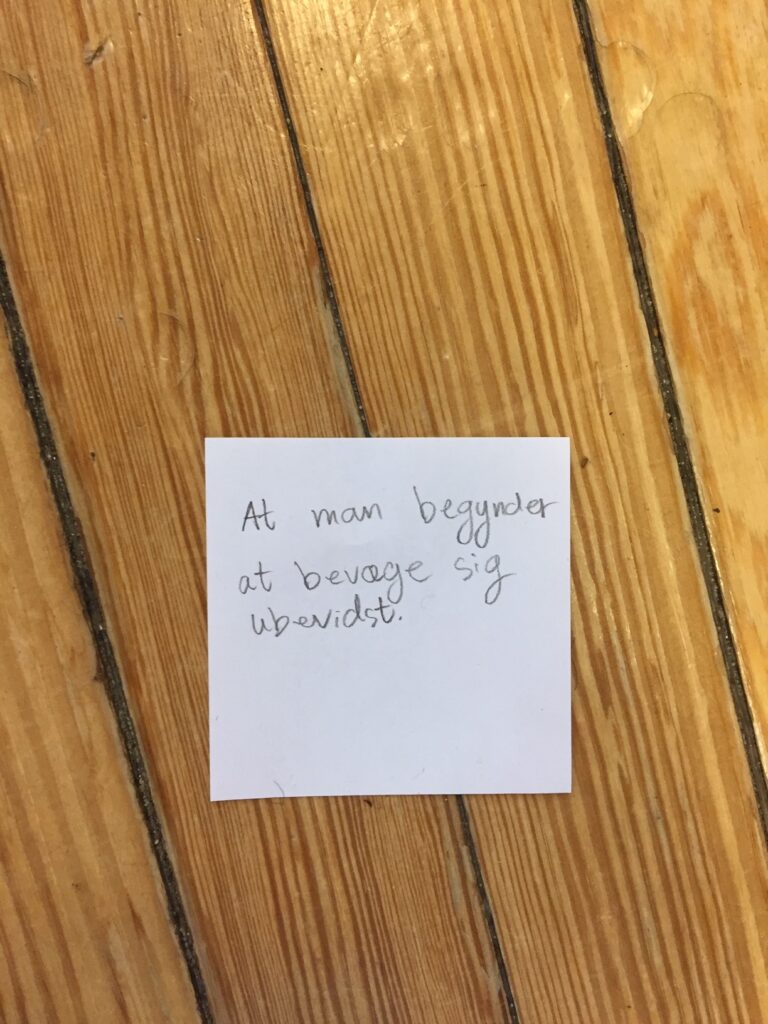 At man begynder
at bevæge sig
ubevidst.